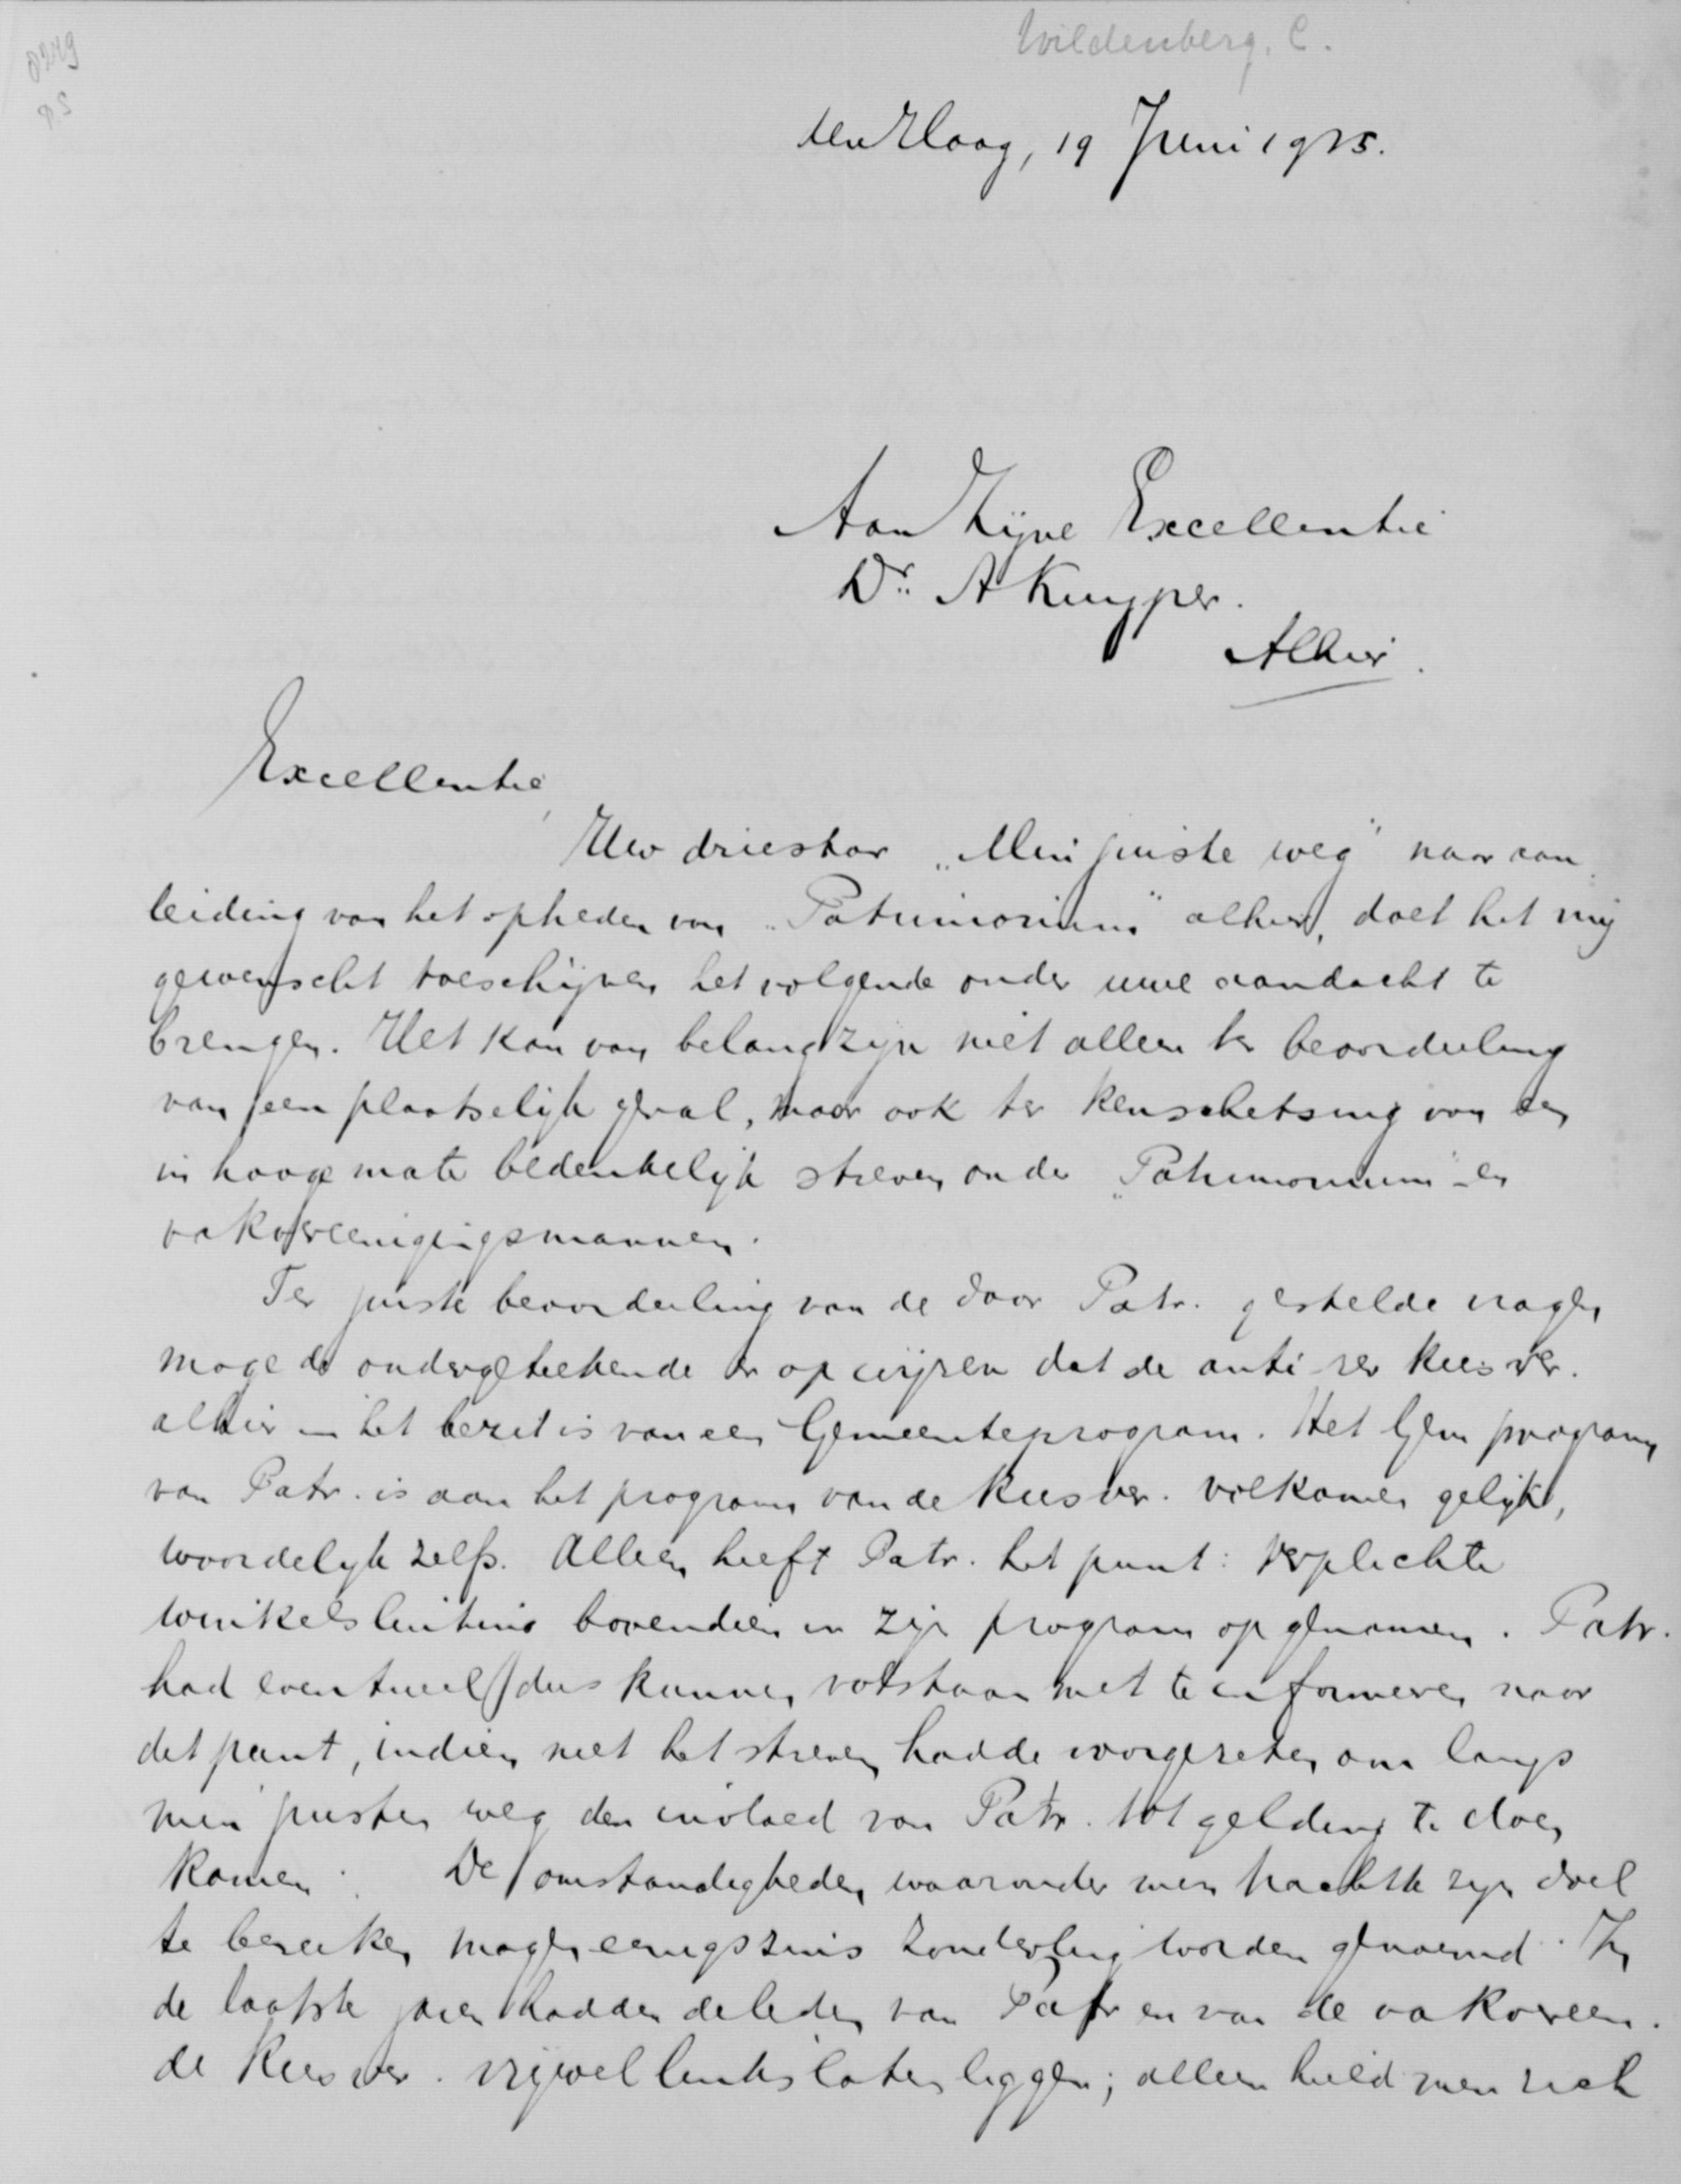 Wildenberg, C.
8249
den Haag, 19 Juni 1915.
Aan Zijne Excellentie
Dr. A Kuyper.
Alhier.
Excellentie,
Uw driestar „Min juiste weg" naar aan
leiding van het optreden van „Patrimonium" alhier, doet het mij
gewenscht toeschijnen het volgende onder uwe aandacht te
brengen. Het kan van belang zijn niet alleen ter beoordeeling
van een plaatselijk geval, maar ook ter kenschetsing van een
in hooge mate bedenkelijk streven onder „Patrimonium"- en
vakvereenigingsmannen.
Ter juiste beoordeeling van de door Patr. gestelde vragen
moge de ondergeteekende er op wijzen dat de anti-rev kiesver.
alhier in het bezit is van een Gemeenteprogram. Het Gem program
van Patr. is aan het program van de kiesver. volkomen gelijk,
woordelijk zelfs. Alleen heeft Patr. het punt: verplichte
winkelsluiting bovendien in zijn program opgenomen. Patr.
had eventueel dus kunnen volstaan met te informeren naar
dit punt, indien niet het streven hadde voorgezeten om langs
min juisten weg den invloed van Patr. tot gelding te doen
komen. De omstandigheden waaronder men trachtte zijn doel
te bereiken mogen eenigszins zonderling worden genoemd. In
de laatste jaren hadden de leden van Patr en van de vakvereen.
de kiesver. vrijwel links laten liggen; alleen hield men zich